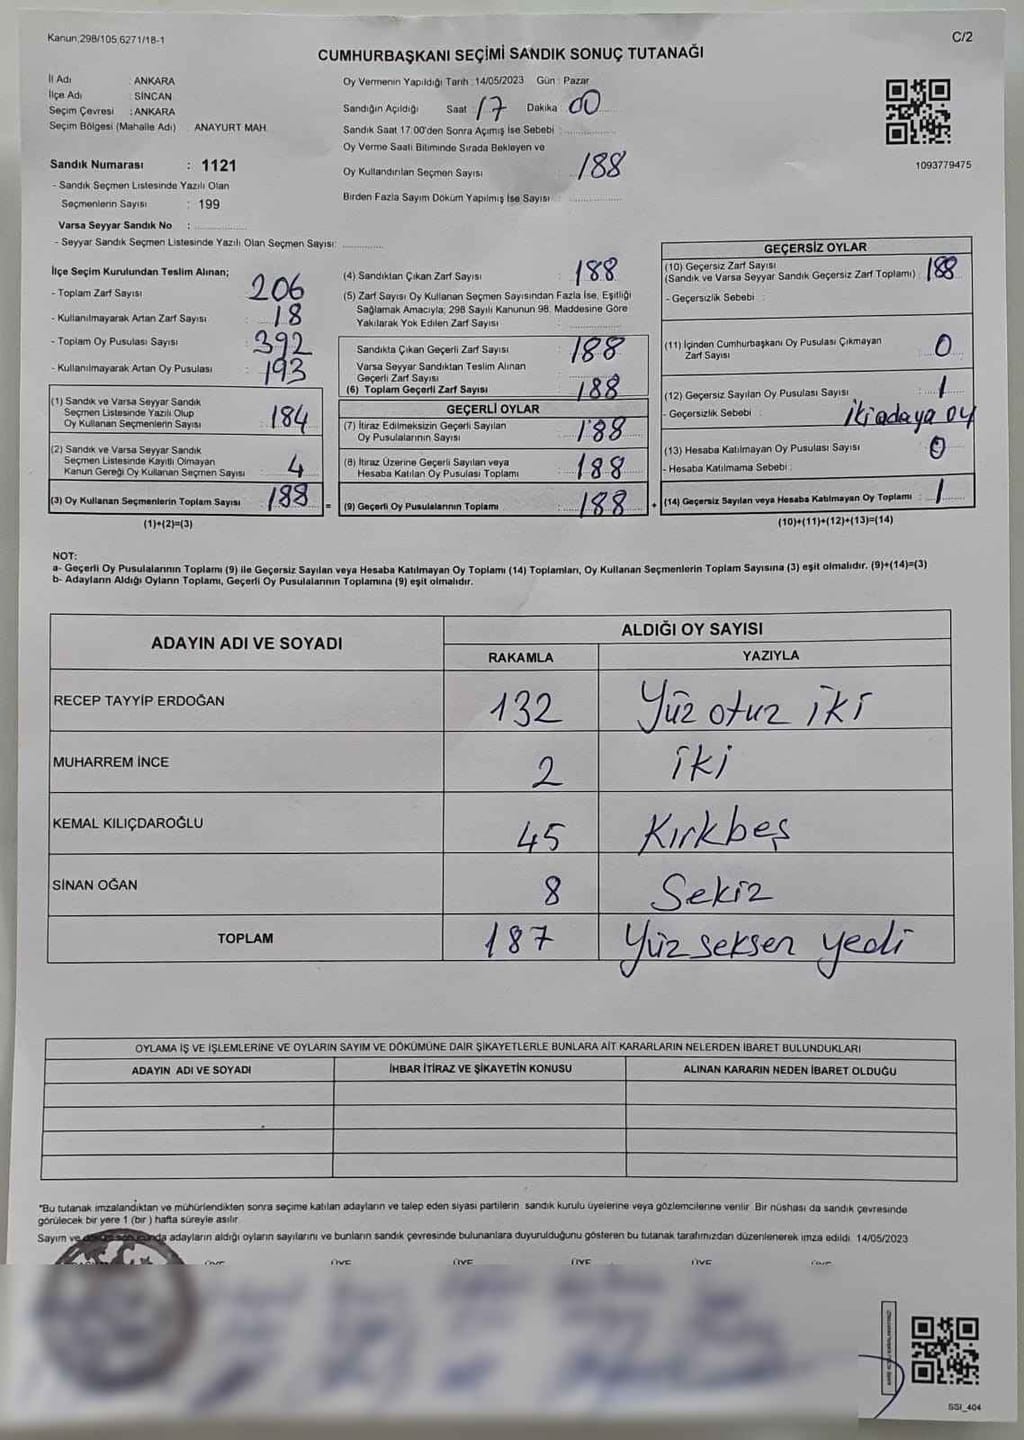 Kanun,298/105,6271/18-1
C/2
CUMHURBAŞKANI SEÇİMİ SANDIK SONUÇ TUTANAĞI
İl Adı : ANKARA
İlçe Adı : SİNCAN
Seçim Çevresi : ANKARA
Seçim Bölgesi (Mahalle Adı) : ANAYURT MAH.
Sandık Numarası : 1121
- Sandık Seçmen Listesinde Yazılı Olan
Seçmenlerin Sayısı : 199
Varsa Seyyar Sandık No :
- Seyyar Sandık Seçmen Listesinde Yazılı Olan Seçmen Sayısı:
Oy Vermenin Yapıldığı Tarih : 14/05/2023 Gün : Pazar
Sandığın Açıldığı Saat : 17 Dakika 00
Sandık Saat 17.00'den Sonra Açımış İse Sebebi :
Oy Verme Saati Bitiminde Sırada Bekleyen ve
Oy Kullandırılan Seçmen Sayısı : 188
Birden Fazla Sayım Döküm Yapılmış İse Sayısı :
1093779475
İlçe Seçim Kurulundan Teslim Alınan;
- Toplam Zarf Sayısı : 206
- Kullanılmayarak Artan Zarf Sayısı : 18
- Toplam Oy Pusulası Sayısı : 392
- Kullanılmayarak Artan Oy Pusulası : 193
(1) Sandık ve Varsa Seyyar Sandık
Seçmen Listesinde Yazılı Olup
Oy Kullanan Seçmenlerin Sayısı : 184
(2) Sandık ve Varsa Seyyar Sandık
Seçmen Listesinde Kayıtlı Olmayan
Kanun Gereği Oy Kullanan Seçmen Sayısı : 4
(3) Oy Kullanan Seçmenlerin Toplam Sayısı : 188 =
(1)+(2)=(3)
(4) Sandıktan Çıkan Zarf Sayısı : 188
(5) Zarf Sayısı Oy Kullanan Seçmen Sayısından Fazla İse, Eşitliği
Sağlamak Amacıyla; 298 Sayılı Kanunun 98. Maddesine Göre
Yakılarak Yok Edilen Zarf Sayısı :
Sandıkta Çıkan Geçerli Zarf Sayısı : 188
Varsa Seyyar Sandıktan Teslim Alınan
Geçerli Zarf Sayısı
(6) Toplam Geçerli Zarf Sayısı : 188
GEÇERLİ OYLAR
(7) İtiraz Edilmeksizin Geçerli Sayılan
Oy Pusulalarının Sayısı : 188
(8) İtiraz Üzerine Geçerli Sayılan veya
Hesaba Katılan Oy Pusulası Toplamı : 188
(9) Geçerli Oy Pusulalarının Toplamı : 188 +
GEÇERSİZ OYLAR
(10) Geçersiz Zarf Sayısı
(Sandık ve Varsa Seyyar Sandık Geçersiz Zarf Toplamı) : 188
- Geçersizlik Sebebi :
(11) İçinden Cumhurbaşkanı Oy Pusulası Çıkmayan
Zarf Sayısı : 0
(12) Geçersiz Sayılan Oy Pusulası Sayısı : 1
- Geçersizlik Sebebi : iki adaya oy
(13) Hesaba Katılmayan Oy Pusulası Sayısı : 0
- Hesaba Katılmama Sebebi :
(14) Geçersiz Sayılan veya Hesaba Katılmayan Oy Toplamı : 1
(10)+(11)+(12)+(13)=(14)
NOT:
a- Geçerli Oy Pusulalarının Toplamı (9) ile Geçersiz Sayılan veya Hesaba Katılmayan Oy Toplamı (14) Toplamları, Oy Kullanan Seçmenlerin Toplam Sayısına (3) eşit olmalıdır. (9)+(14)=(3)
b- Adayların Aldığı Oyların Toplamı, Geçerli Oy Pusulalarının Toplamına (9) eşit olmalıdır.
ADAYIN ADI VE SOYADI
ALDIĞI OY SAYISI
RAKAMLA YAZIYLA
RECEP TAYYİP ERDOĞAN 132 Yüz otuz iki
MUHARREM İNCE 2 iki
KEMAL KILIÇDAROĞLU 45 Kırkbeş
SİNAN OĞAN 8 Sekiz
TOPLAM 187 Yüz seksen yedi
OYLAMA İŞ VE İŞLEMLERİNE VE OYLARIN SAYIM VE DÖKÜMÜNE DAİR ŞİKAYETLERLE BUNLARA AİT KARARLARIN NELERDEN İBARET BULUNDUKLARI
ADAYIN ADI VE SOYADI İHBAR İTİRAZ VE ŞİKAYETİN KONUSU ALINAN KARARIN NEDEN İBARET OLDUĞU
"Bu tutanak imzalandıktan ve mühürlendikten sonra seçime katılan adayların ve talep eden siyasi partilerin sandık kurulu üyelerine veya gözlemcilerine verilir. Bir nüshası da sandık çevresinde
görülecek bir yere 1 (bir ) hafta süreyle asılır.
Sayım ve adayların aldığı oyların sayılarını ve bunların sandık çevresinde bulunanlara duyurulduğunu gösteren bu tutanak tarafımızdan düzenlenerek imza edildi. 14/05/2023
SSI_404